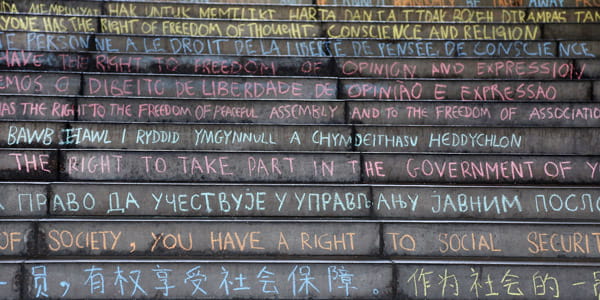 MEMPUNYAI HAK UNTUK MEMILIKI HARTA DAN TA TIDAK BOLEH DIRAMPAS
YONE HAS THE RIGHT OF FREEDOM OF THOUGHT, CONSCIENCE AND RELIGION
PERSONNE A LE DROIT DE LA LIBERTÉ DE PENSÉE, DE CONSCIENCE,
HAVE THE RIGHT TO FREEDOM OF OPINION AND EXPRESSION
EMOS O DIREITO DE LIBERDADE DE OPINIÃO E EXPRESSÃO
HAS THE RIGHT TO THE FREEDOM OF PEACEFUL ASSEMBLY AND TO THE FREEDOM OF ASSOCIATIO
BAWB HAWL I RYDDID YMGYNNULL A CHYMDEITHASU HEDDYCHLON
THE RIGHT TO TAKE PART IN THE GOVERNMENT OF Y
ПРАВО ДА УЧЕСТВУЈЕ У УПРАВЉАЊУ ЈАВНИМ ПОСЛО
OF SOCIETY, YOU HAVE A RIGHT TO SOCIAL SECURIT
一员,有权享受社会保障。作为社会的一员